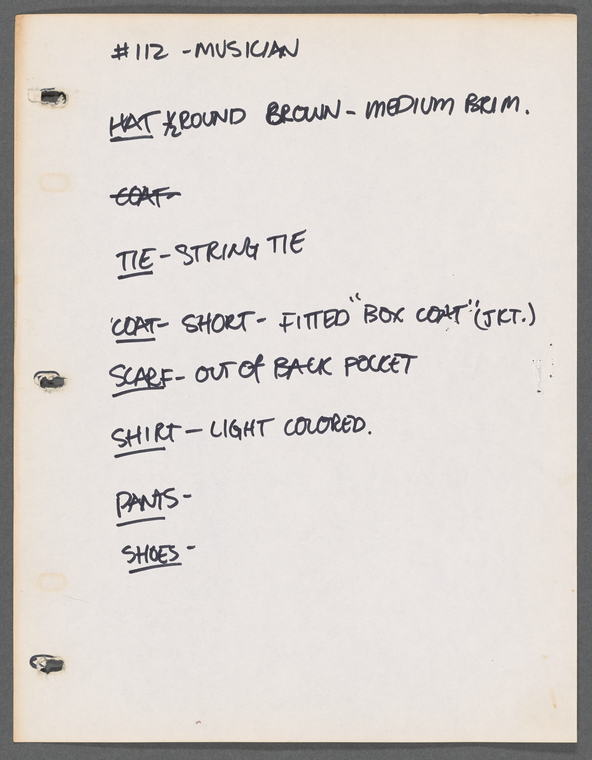 #112 - MUSICIAN
HAT ½ ROUND BROWN - MEDIUM BRIM.
COAT-
TIE - STRING TIE
COAT- SHORT - FITTED "BOX COAT" (JKT.)
SCARF - OUT OF BACK POCKET
SHIRT - LIGHT COLORED.
PANTS-
SHOES-